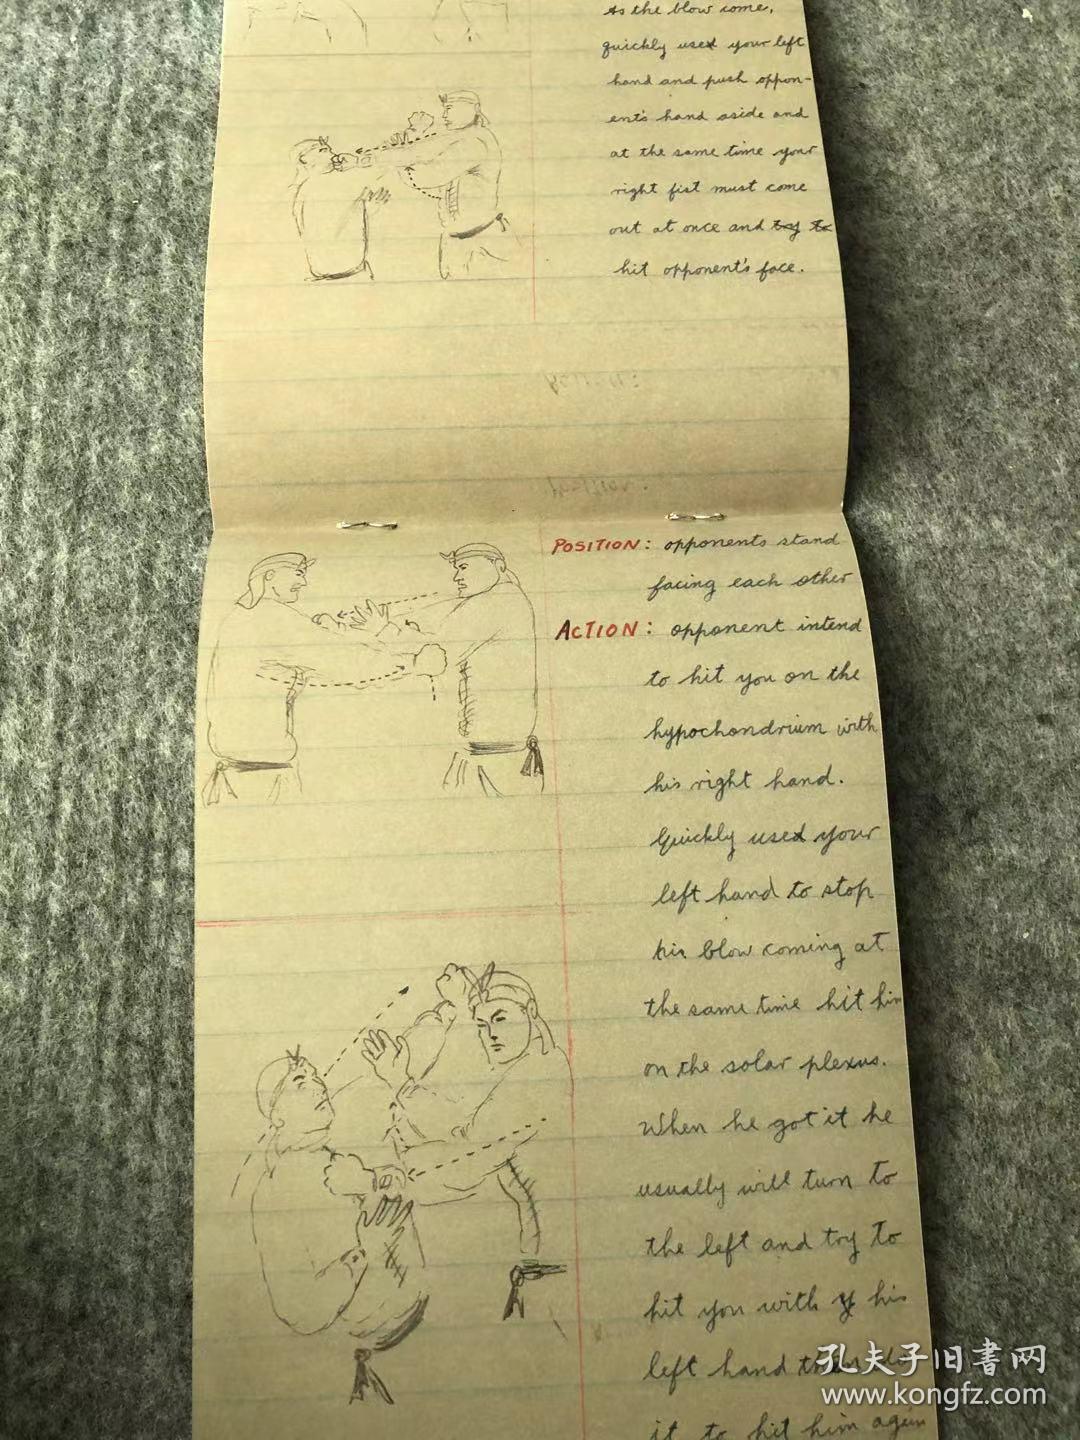 As the blow come,
quickly used your left
hand and push oppon-
ent's hand aside and
at the same time your
right fist must come
out at once and try to
hit opponent's face.
POSITION: opponents stand
facing each other
ACTION: opponent intend
to hit you on the
hypochondrium with
his right hand.
Quickly used your
left hand to stop
his blow coming at
the same time hit him
on the solar plexus.
When he got it he
usually will turn to
the left and try to
hit you with y his
left hand
it to hit him again
孔夫子旧書网
www.kongfz.com